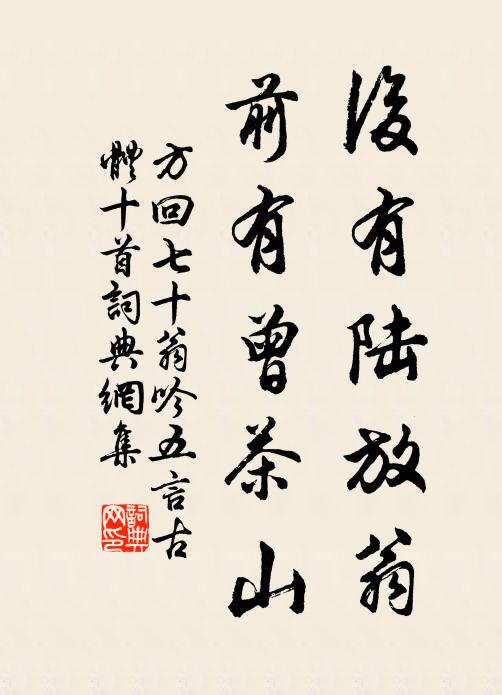 後有陸放翁
前有曾茶山
方回七十翁吟五言古
體十首詞典網集
詞典网印